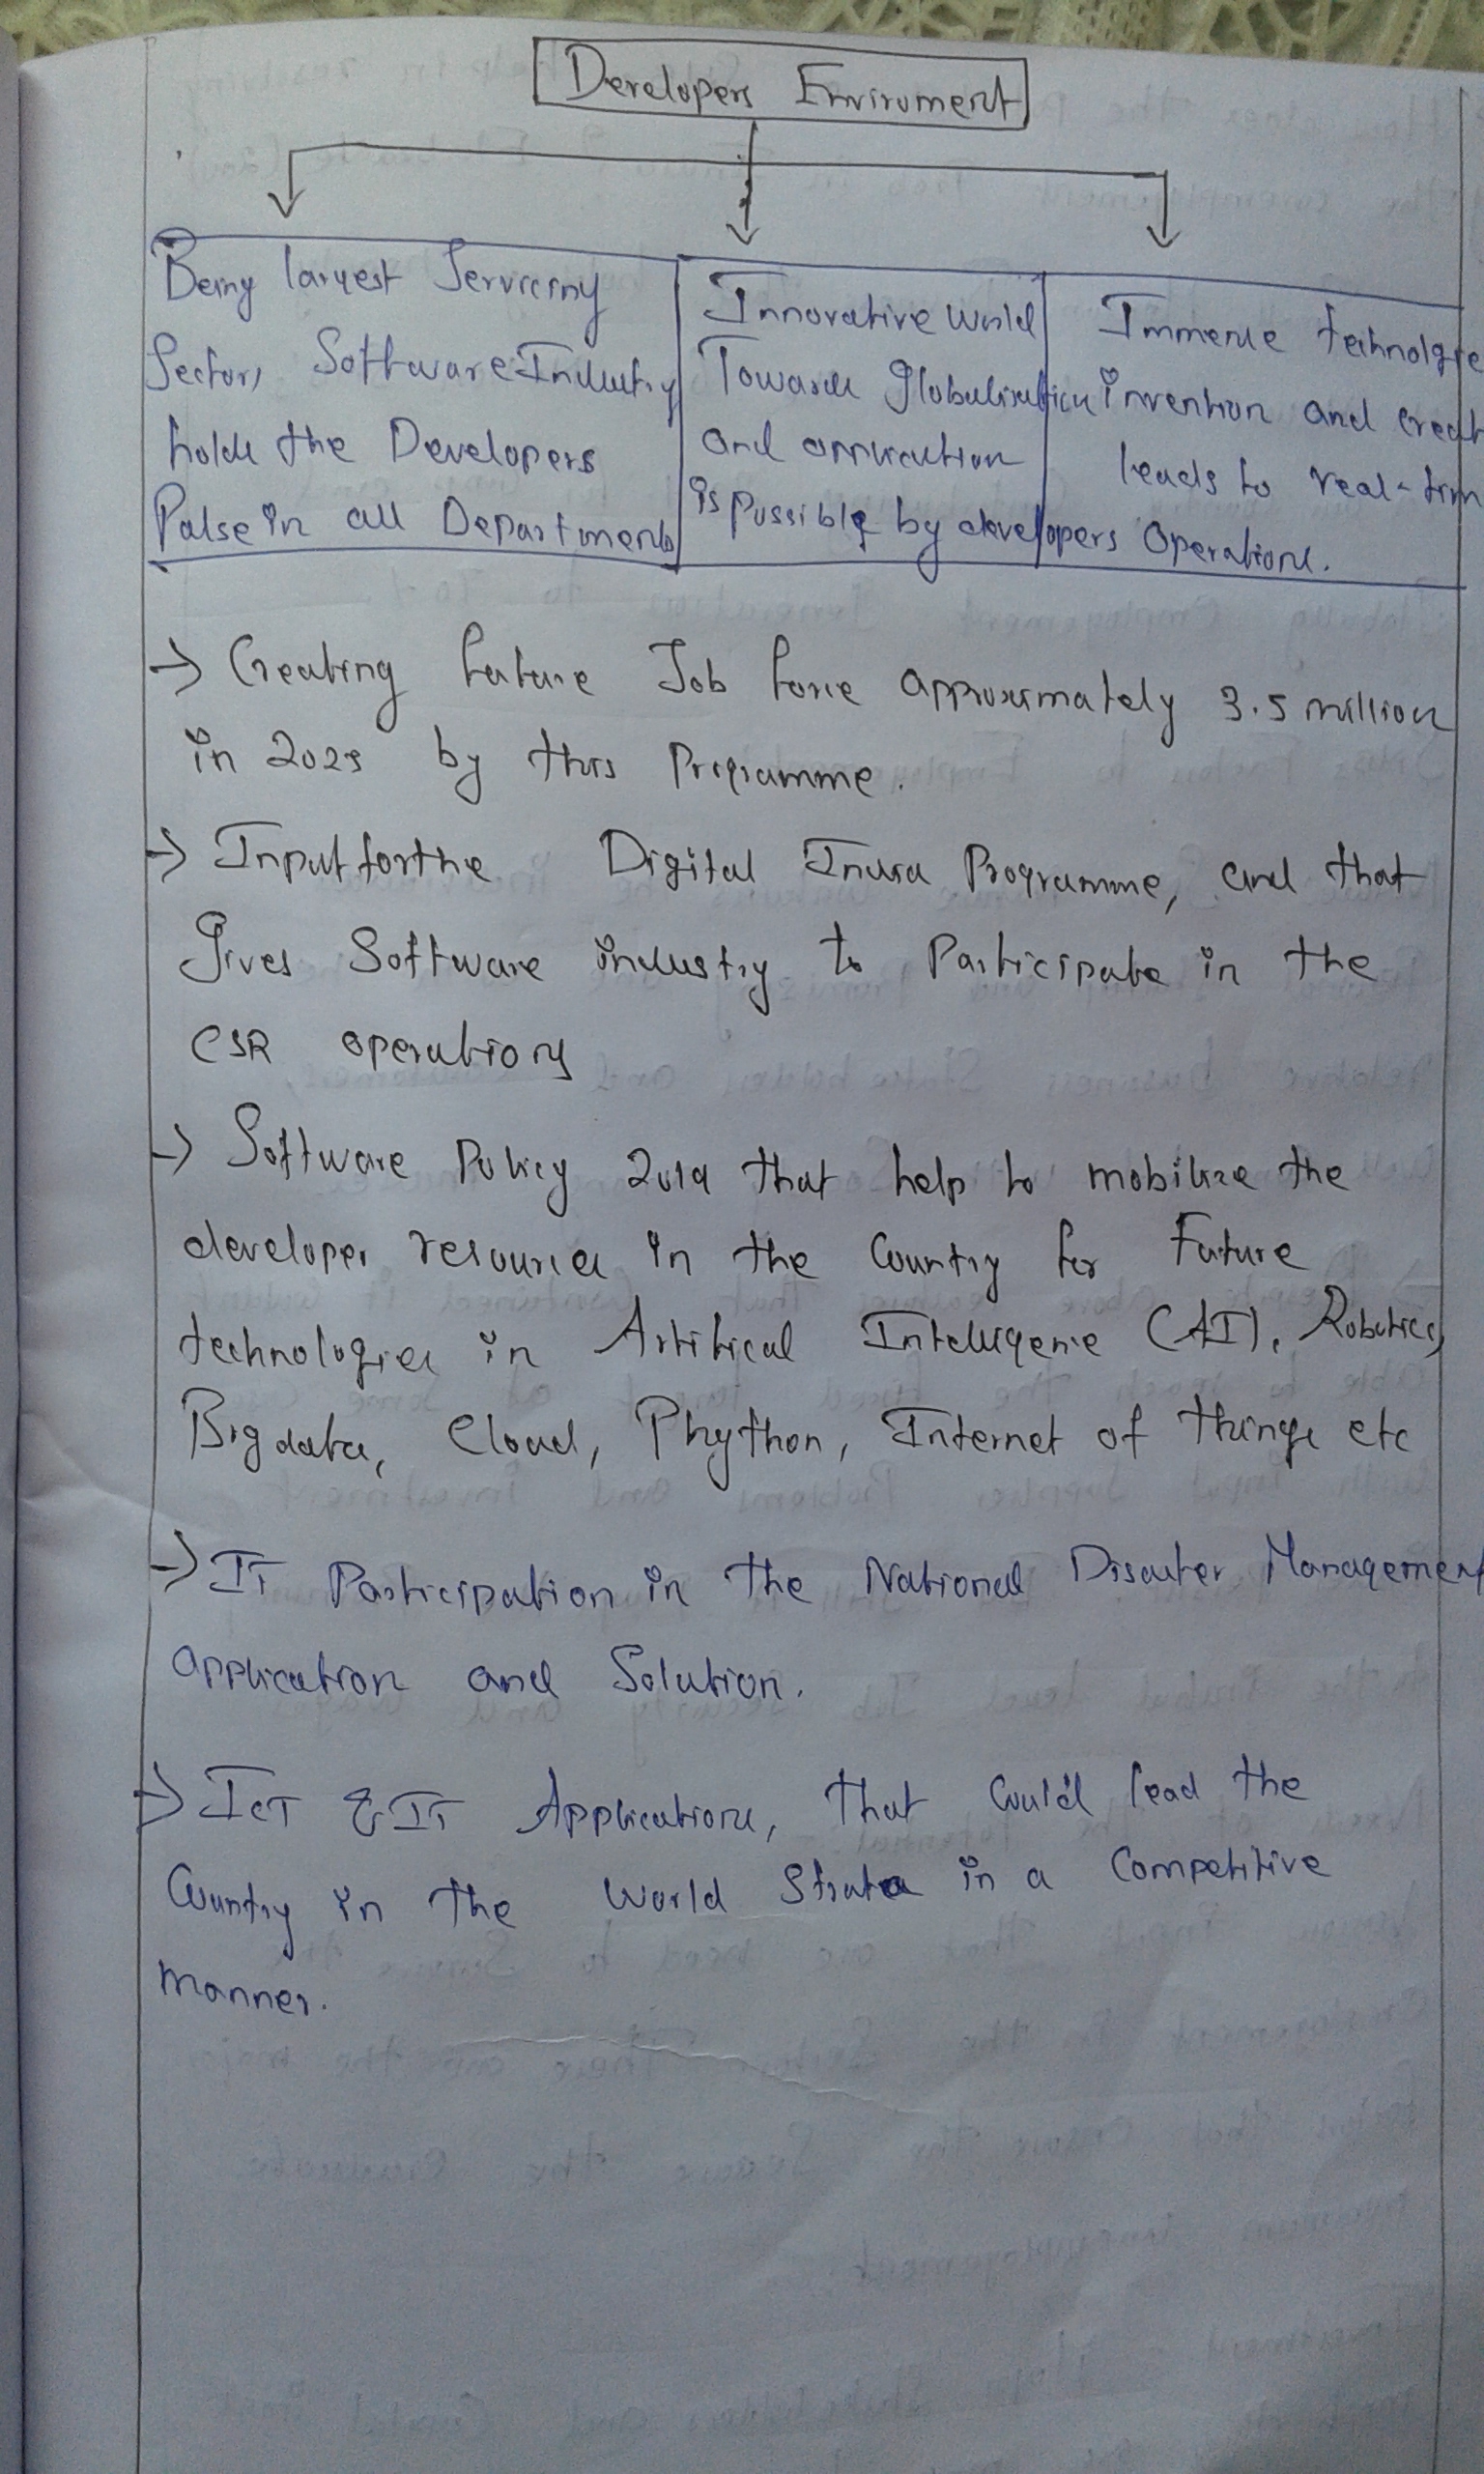 Developers Enviroment
Being largest Servicing
Sector, Software Industry
holds the Developers
Pulse in all Departments
Innovative World
Towards Globalisation
and application
is Possible by developers
Immense technologies
invention and
leads to real-time
Operations.
→ Creating future Job force approximately 3.5 million
in 2025 by this Programme.
→ Input for the Digital India Programme, and that
gives Software industry to Participate in the
CSR operations
→ Software Policy 2019 that help to mobilize the
developer resources in the Country for Future
technologies in Artifical Intelligence (AI), Robotics,
Big data, Cloud, Phython, Internet of things etc
→ IT Participation in the National Disaster Management
application and Solution.
→ ICT & IT Applications, that Could lead the
Country in the World Strata in a Competitive
manner.